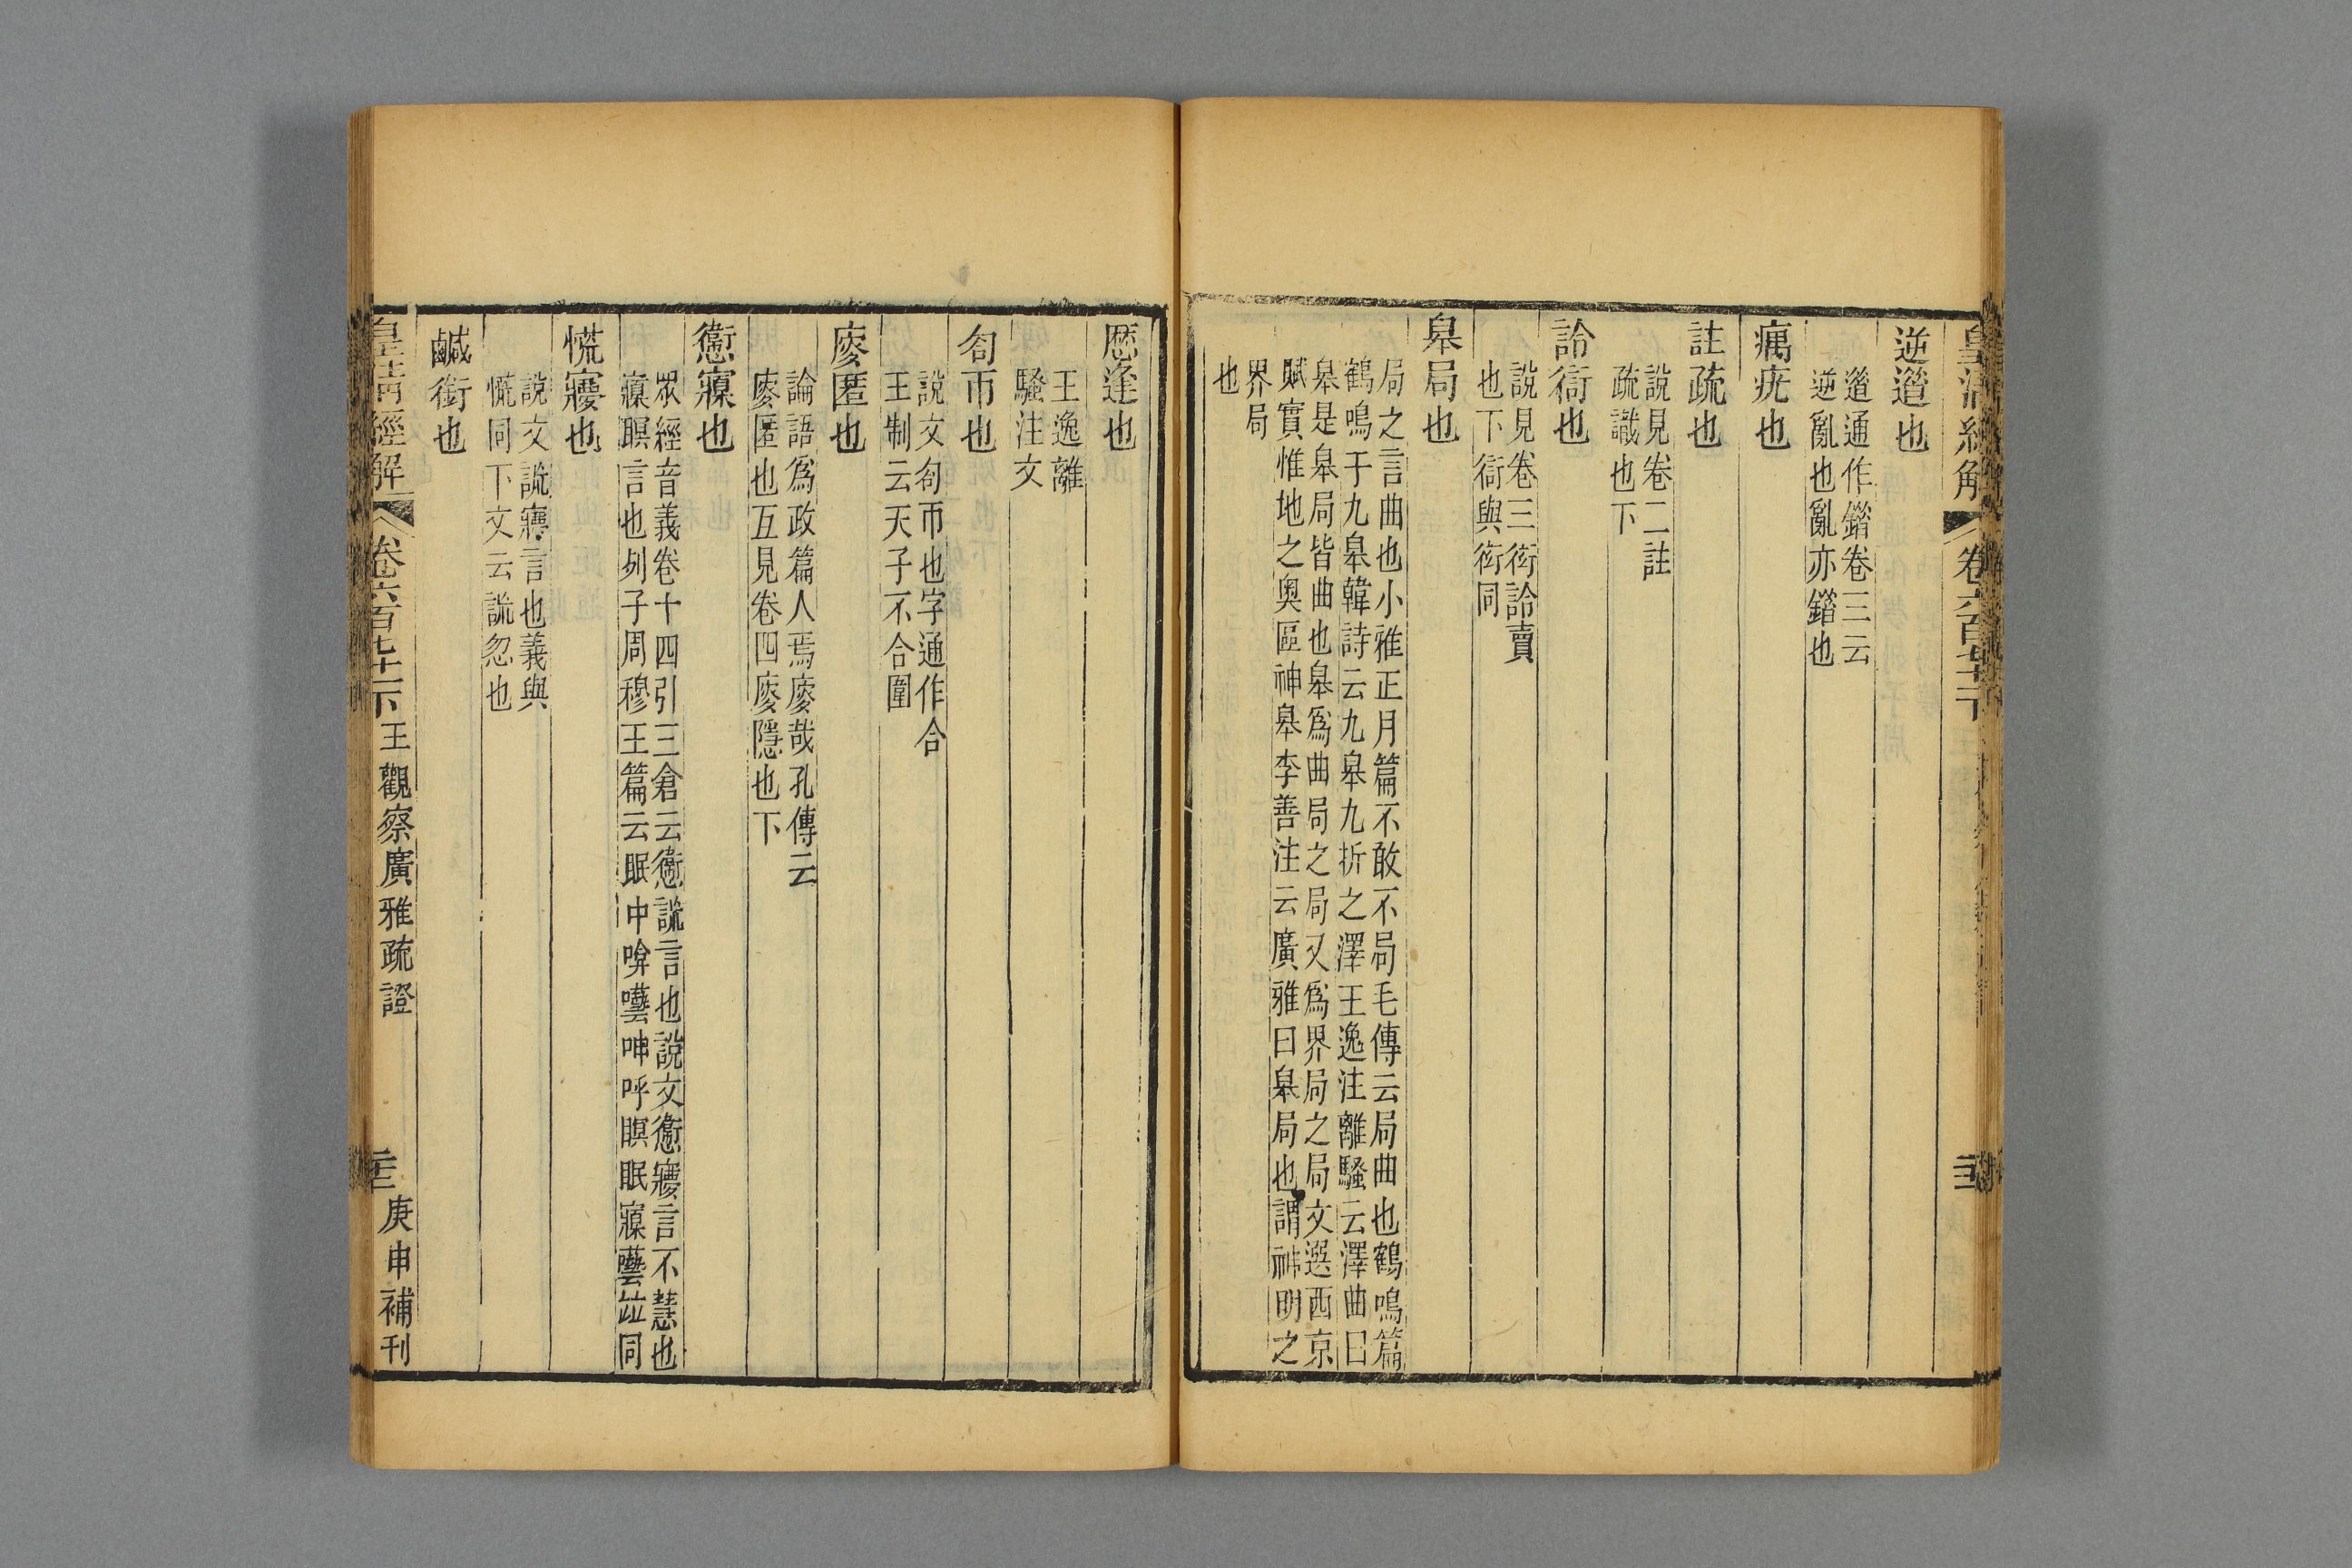 皇清經解
卷六百七十
逆遒也
遒通作鍇卷三云
逆亂也亂亦鍇也
癘疣也
註疏也
說見卷二註
疏識也下
詅衒也
說見卷三衒詅賣
也下衒與衒同
皋局也
局之言曲也小雅正月篇不敢不局毛傳云局曲也鶴鳴篇
鶴鳴于九皋韓詩云九皋九折之澤王逸注離騷云澤曲曰
皋是皋局皆曲也皋為曲局之局又為界局之局文選西京
賦實惟地之奧區神皋李善注云廣雅曰皋局也謂神明之
界局
也
歷逢也
王逸離
騷注文
匌帀也
說文匌帀也字通作合
王制云天子不合圍
廋匿也
論語為政篇人焉廋哉孔傳云
廋匿也互見卷四廋隱也下
𢣧㝱也
眾經音義卷十四引三倉云𢣧謊言也說文𢣧㝱言不慧也
㝱瞑言也列子周穆王篇云眠中啽囈呻呼瞑眠㝱囈竝同
慌㝱也
說文謊㝱言也義與
慌同下文云謊忽也
鹹銜也
皇清經解
卷六百七十下
王觀察廣雅疏證
庚申補刊